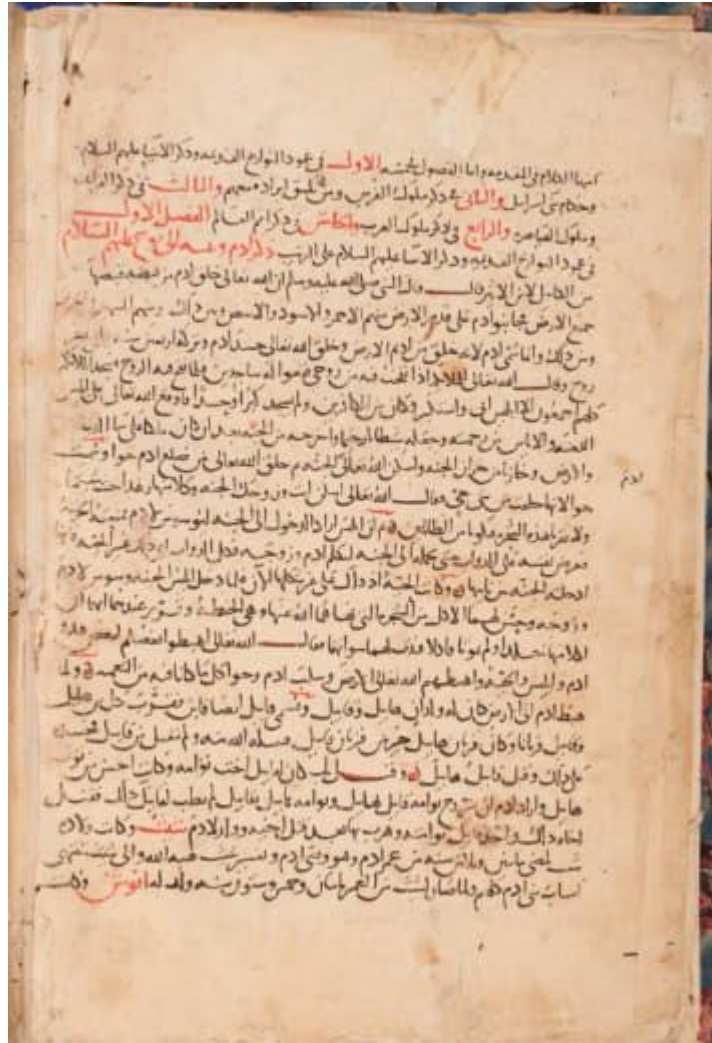 انتهى الكلام في المقدمة واما الفصول فخمسة الاول في عمود التواريخ القديمة وذكر الانبيا عليهم السلام
وحكام بني اسرايل والثاني في ذكر ملوك الفرس ومن يليق ايراده معهم والثالث في ذكر الفراعنة
وملوك القياصرة والرابع في ذكر ملوك العرب والخامس في ذكر امم العالم الفصل الاول
في عمود التواريخ القديمة وذكر الانبيا عليهم السلام على الترتيب ذكر ادم وبنيه الى نوح عليهم السلام
من الكامل لابن الاثير قال قال النبي صلى الله عليه وسلم ان الله تعالى خلق ادم من قبضة قبضها
جميع الارض فجا بنو ادم على قدر الارض منهم الاحمر والاسود والابيض وبين ذلك ومنهم السهل والحزن
وبين ذلك وانما سمي ادم لانه خلق من اديم الارض وخلق الله تعالى جسد ادم وتركه اربعين
روح وقال الله تعالى للملايكة اذا نفخت فيه من روحي فقعوا له ساجدين فلما نفخ فيه الروح فسجد الملايكة
كلهم اجمعون الا ابليس ابى واستكبر وكان من الكافرين ولم يسجد كبرا وحسدا فاوقع الله تعالى على ابليس
اللعنة والاياس من رحمته وجعله شيطانا رجيما واخرجه من الجنة بعد ان كان ملكا على سما الدنيا
والارض وخازنا من خزان الجنة واسكن الله تعالى الجنة ثم خلق الله تعالى من ضلع ادم حوا وسميت
ادم
حوا لانها خلقت من شي حي فقال الله تعالى اسكن انت وزوجك الجنة وكلا منها رغدا حيث شيتما
ولا تقربا هذه الشجرة فتكونا من الظالمين ثم ان ابليس اراد الدخول الى الجنة ليوسوس لادم فمنعته الخزنة
فعرض نفسه على الدواب حتى تحمله الى الجنة ليكلم ادم وزوجه فكل الدواب ابى ذلك غير الحية
ادخلته الجنة من نابها وكانت الحية اذ ذاك على غير شكلها الآن فلما دخل ابليس الجنة وسوس لادم
وزوجه وحسن لهما الاكل من الشجرة التي نهاهما الله عنها وهي الحنطة وقرر عندهما انهما ان
اكلا منها خلدا ولم يموتا فاكلا فبدت لهما سواتهما فقال الله تعالى اهبطوا بعضكم لبعض عدو
ادم وابليس والحية واهبطهم الله تعالى الى الارض وسلب ادم وحوا كل ما كانا فيه من النعمة ولما
هبط ادم الى الارض كان له ولدان هابيل وقابيل ويسمى قابيل ايضا قاين فقرب كل من هابيل
وقابيل قربانا وكان قربان هابيل خير من قربان قابيل فتقبله الله منه ولم يتقبل من قابيل فحسده
على ذلك وقتل قابيل هابيل وقيل بل كان لقابيل اخت توامة وكانت احسن من توامة
هابيل واراد ادم ان يزوج توامة قابيل بهابيل وتوامة هابيل بقابيل فلم يطب لقابيل ذلك فقتل
اخاه ذلك واخذ قابيل توامته وهرب بها بعد قتل اخيه وولد لادم شيث وكانت ولادة
شيث لمضي مايتين وثلاثين سنة من عمر ادم وهو وصي ادم وتفسير شيث هبة الله والى شيث تنتهي
انساب بني ادم كلهم ولما صار لشيث من العمر مايتان وخمس وستون سنة ولد له انوش